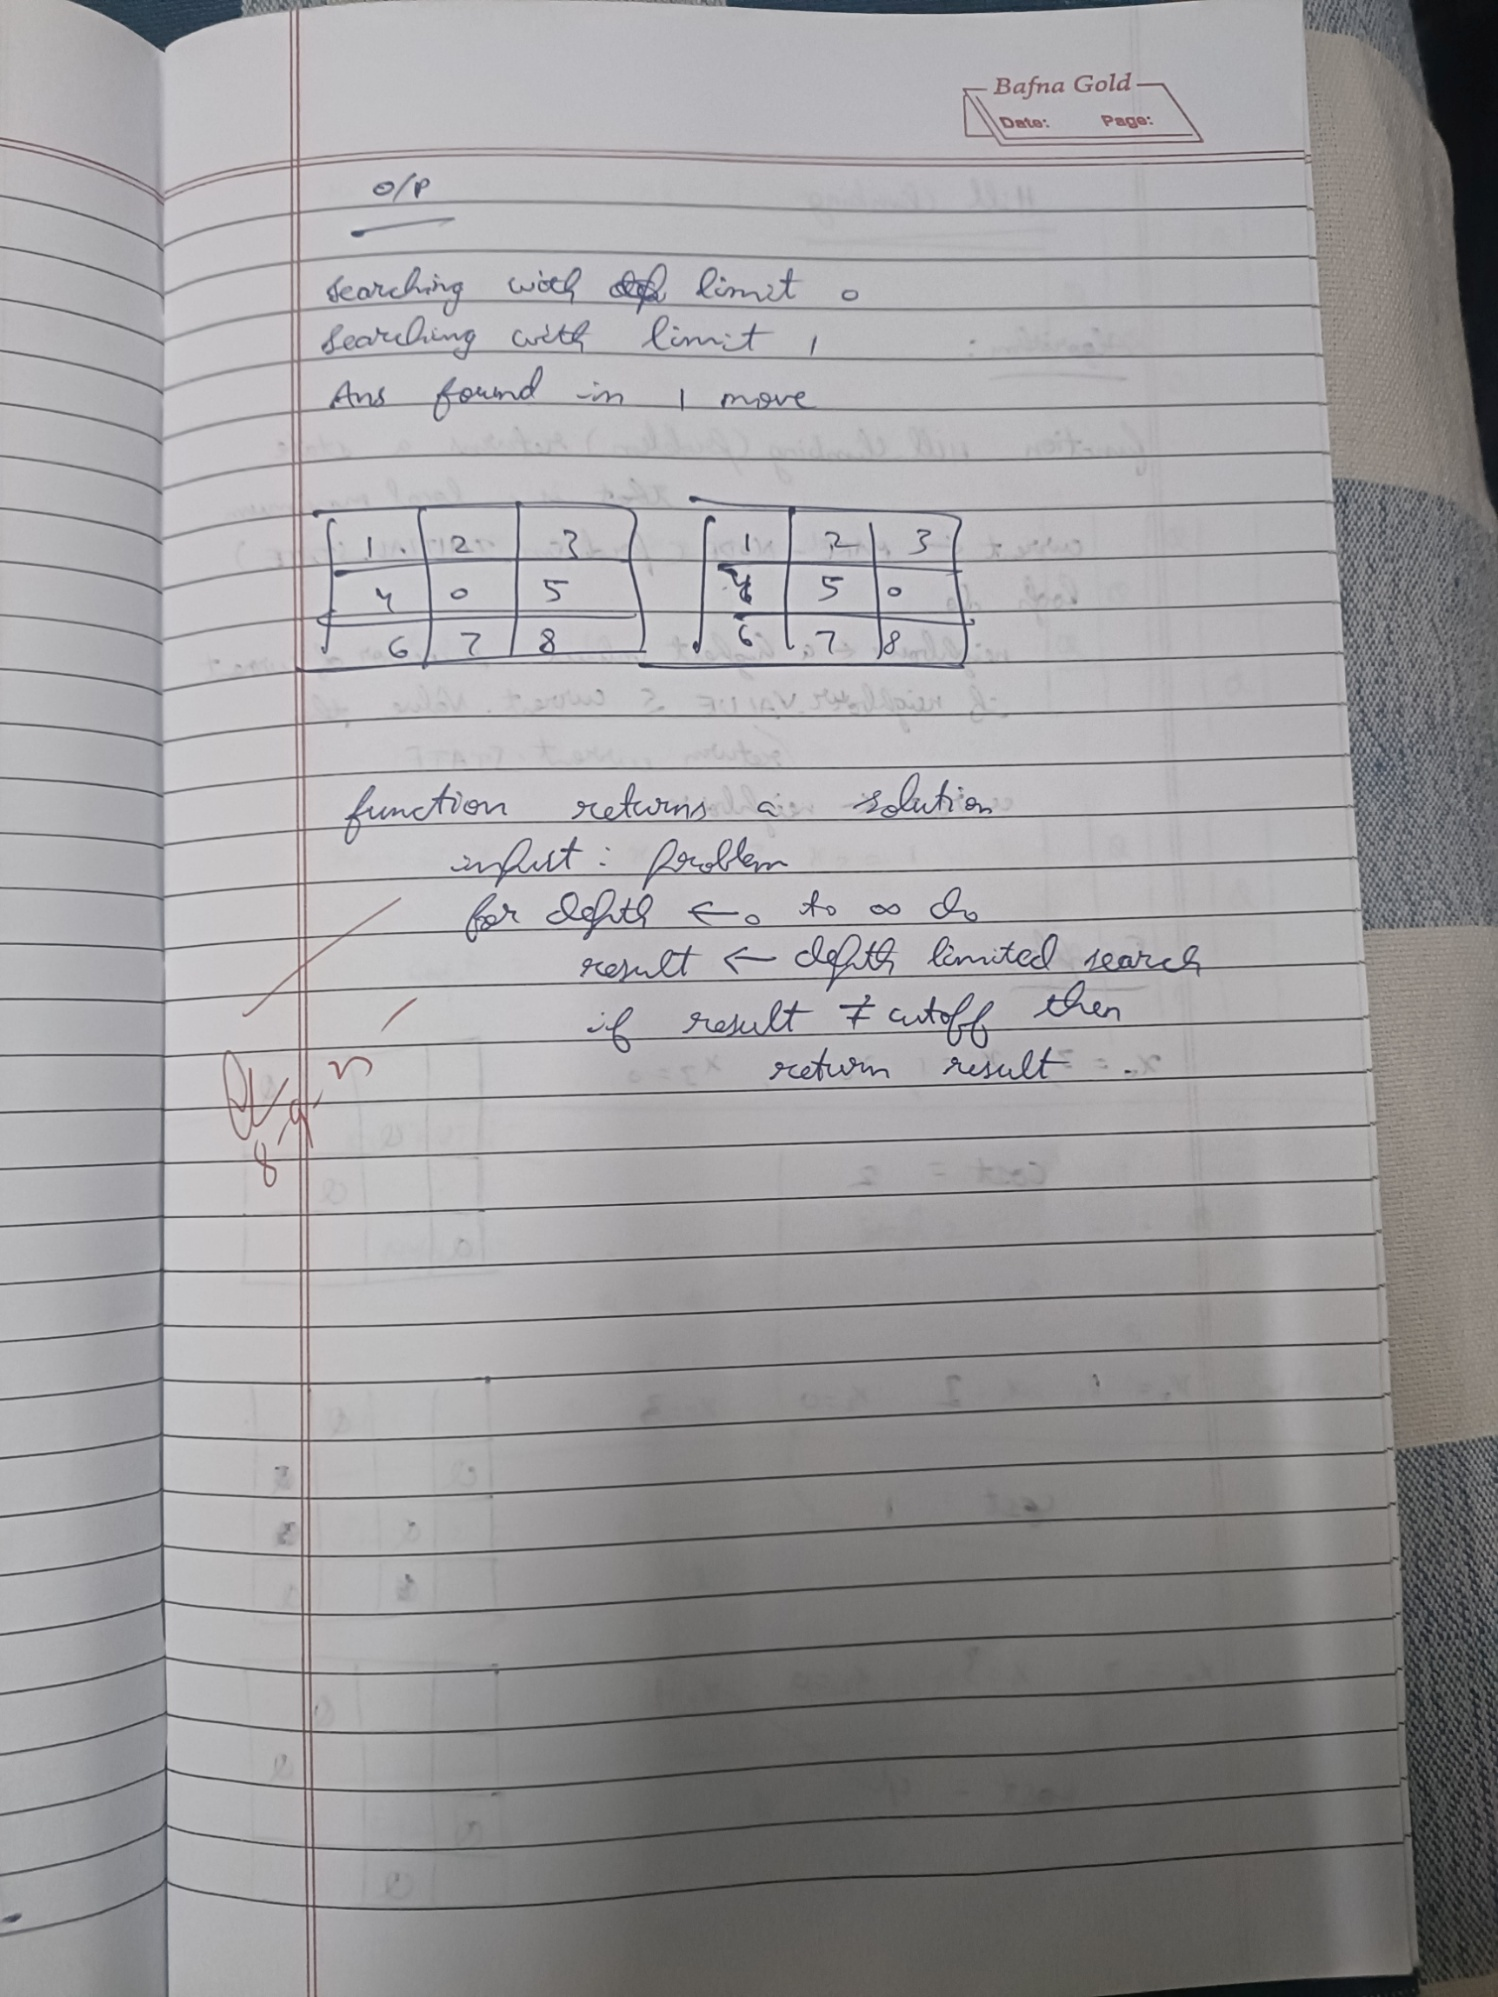 Bafna Gold
Date: Page:
O/P
searching with limit 0
searching with limit 1
Ans found in 1 move
1 2 3 1 2 3
4 0 5 4 5 0
6 7 8 6 7 8
function returns a solution
input : problem
for depth ← 0 to ∞ do
result ← depth limited search
if result ≠ cutoff then
return result.